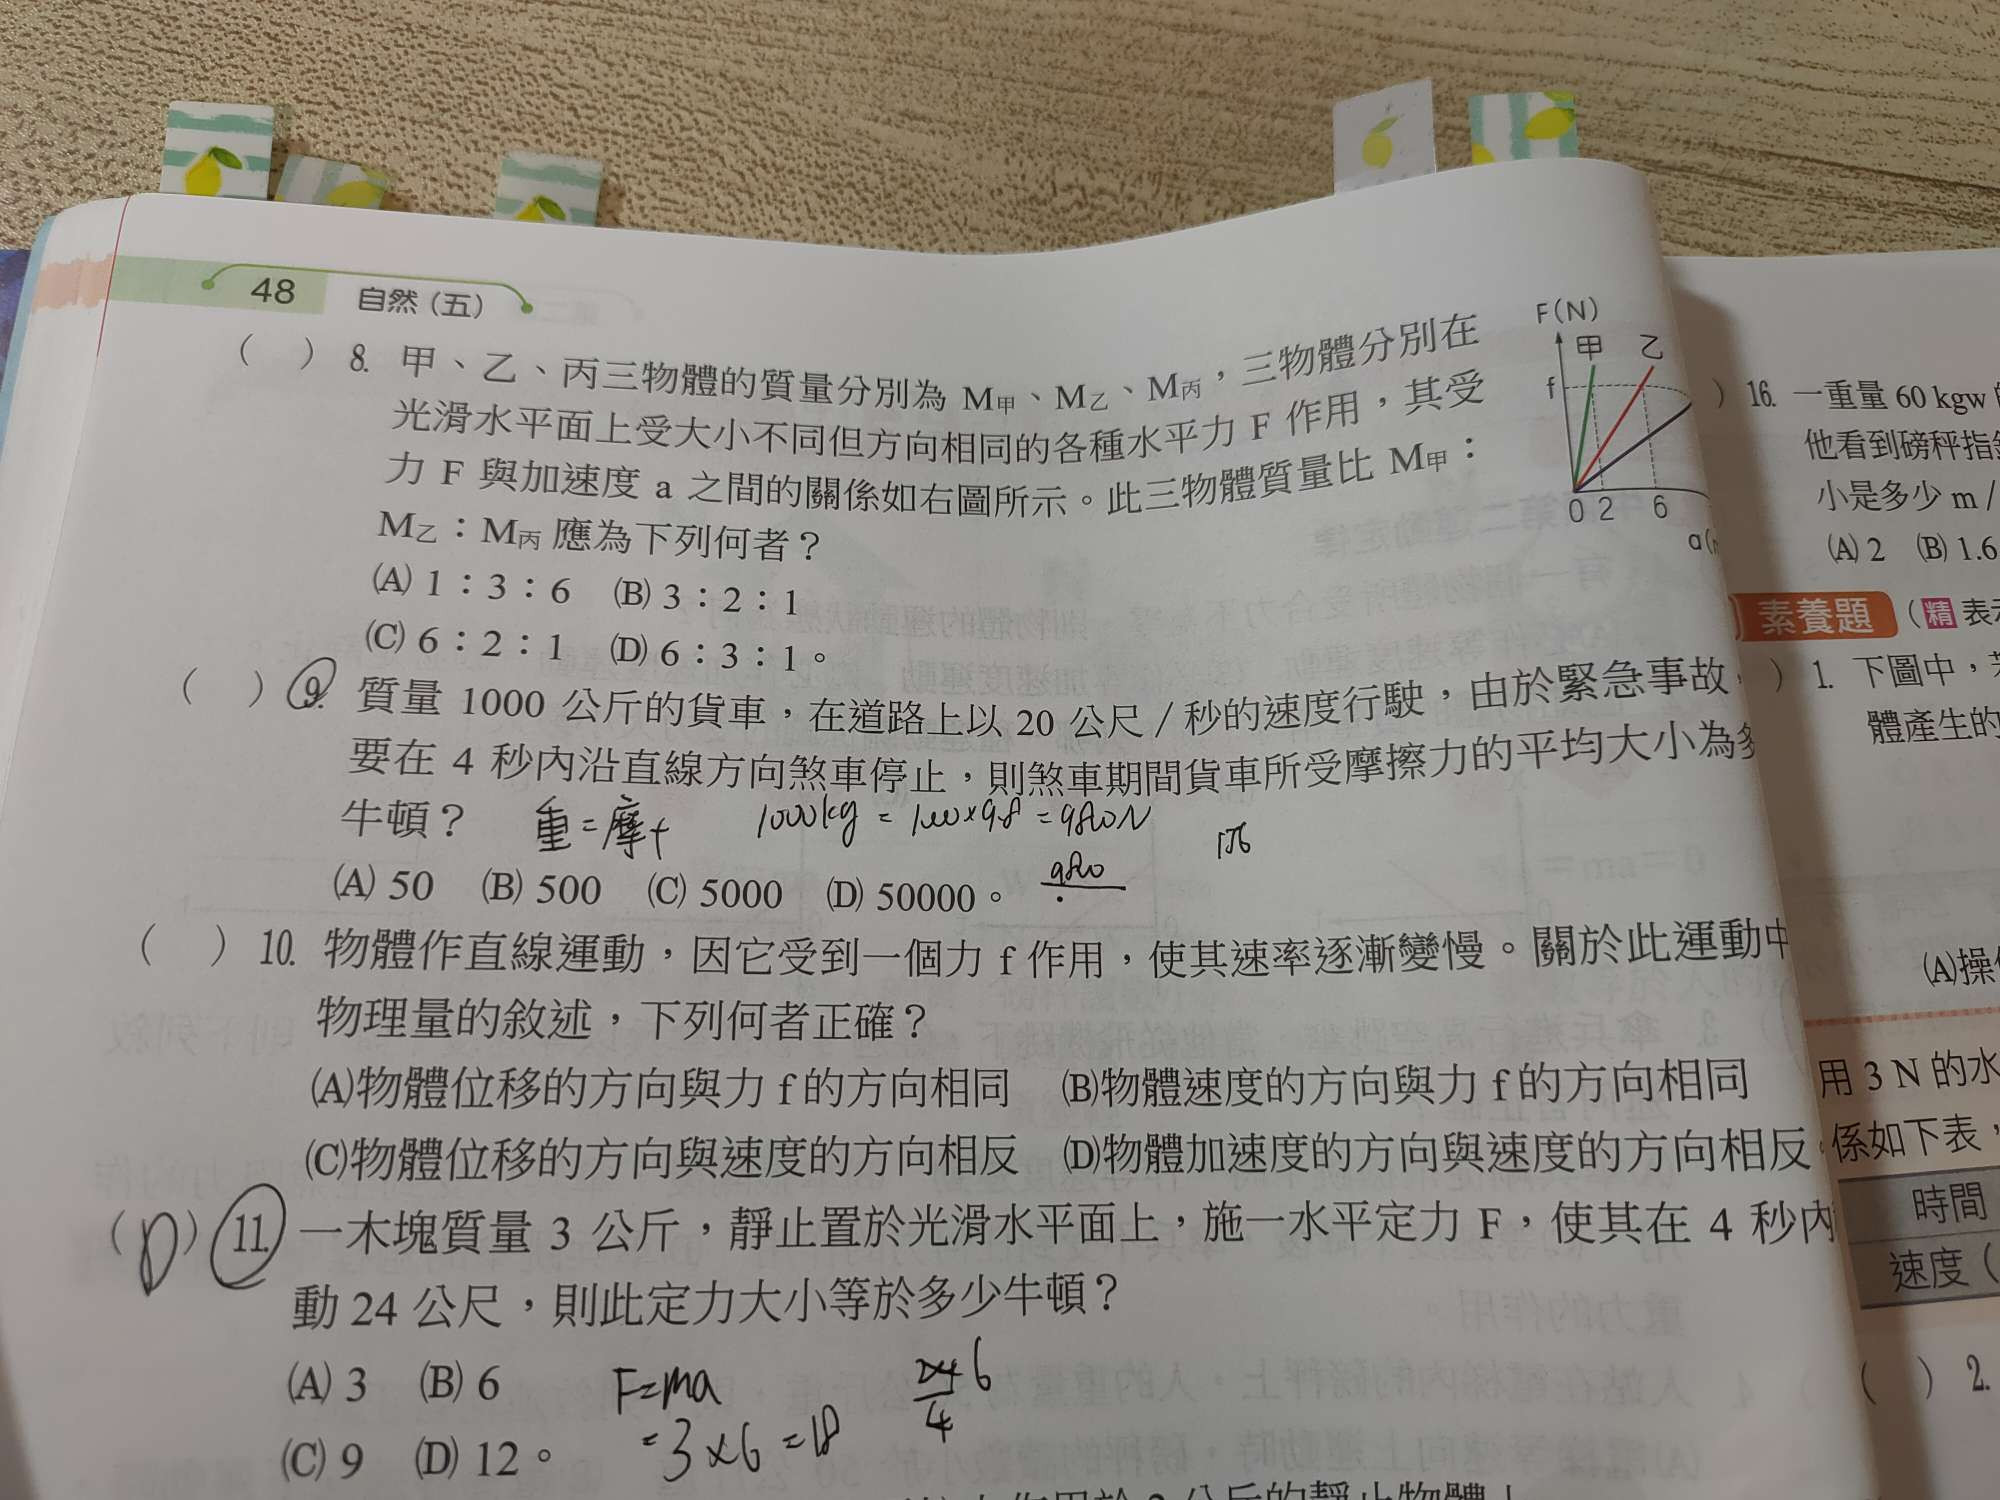 48 自然(五)
( ) 8. 甲、乙、丙三物體的質量分別為 M甲、M乙、M丙,三物體分別在
光滑水平面上受大小不同但方向相同的各種水平力 F 作用,其受
力 F 與加速度 a 之間的關係如右圖所示。此三物體質量比 M甲:
M乙:M丙 應為下列何者?
(A) 1:3:6 (B) 3:2:1
(C) 6:2:1 (D) 6:3:1。
F(N)
甲 乙
f
0 2 6
a(
( ) 9. 質量 1000 公斤的貨車,在道路上以 20 公尺/秒的速度行駛,由於緊急事故,
要在 4 秒內沿直線方向煞車停止,則煞車期間貨車所受摩擦力的平均大小為多
牛頓?
重=摩f 1000kg = 1000×9.8 = 9800N
9800
(A) 50 (B) 500 (C) 5000 (D) 50000。
( ) 10. 物體作直線運動,因它受到一個力 f 作用,使其速率逐漸變慢。關於此運動中
物理量的敘述,下列何者正確?
(A)物體位移的方向與力 f 的方向相同 (B)物體速度的方向與力 f 的方向相同
(C)物體位移的方向與速度的方向相反 (D)物體加速度的方向與速度的方向相反。
(D) 11. 一木塊質量 3 公斤,靜止置於光滑水平面上,施一水平定力 F,使其在 4 秒內
動 24 公尺,則此定力大小等於多少牛頓?
(A) 3 (B) 6
(C) 9 (D) 12。
F=ma
=3×6=18
24 6
4
) 16. 一重量 60 kgw
他看到磅秤指
小是多少 m/
(A) 2 (B) 1.6
素養題 (精 表
) 1. 下圖中,
體產生的
(A)操
用 3 N 的水
係如下表,
時間
速度(
( ) 2.